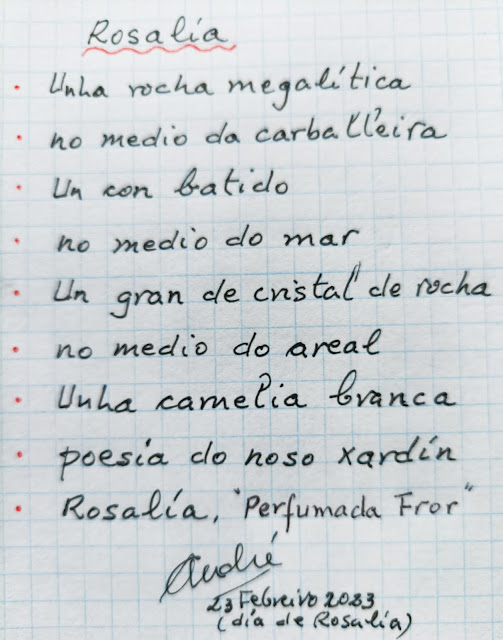 Rosalía
• Unha rocha megalítica
• no medio da carballeira
• Un con batido
• no medio do mar
• Un gran de cristal de rocha
• no medio do areal
• Unha camelia branca
• poesía do noso xardín
• Rosalía, "Perfumada Fror"
André
23 Febreiro 2023
(día de Rosalía)